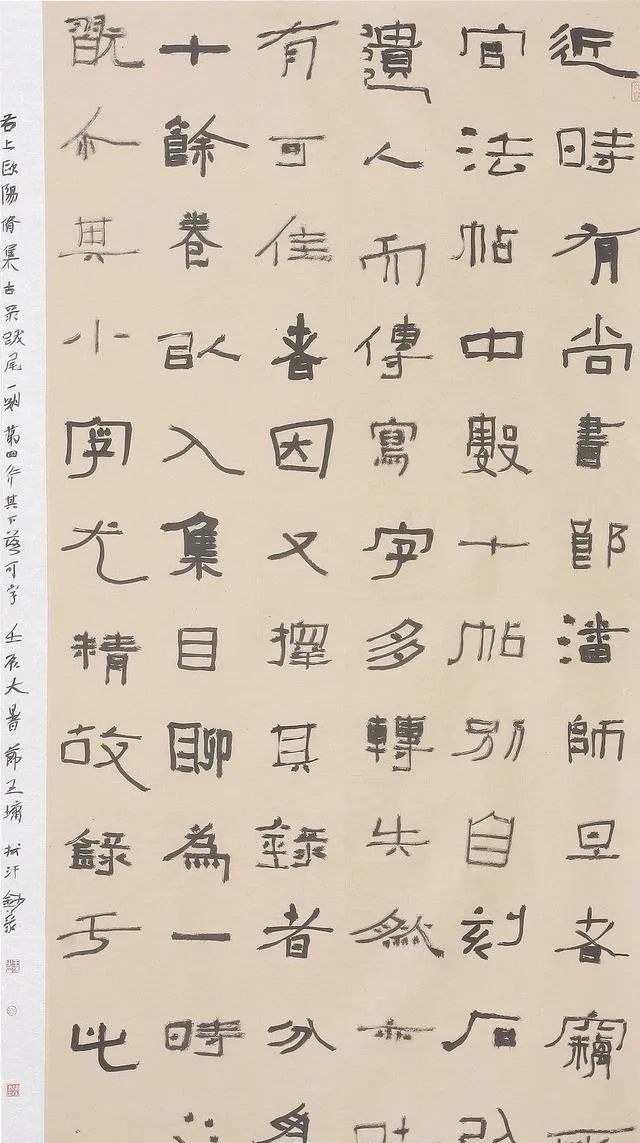 近時有尚書郎潘師旦者竊
官法帖中數十帖別自刻石
遺人而傳寫字多轉失然亦
有可佳者因又擇其錄者分
十餘卷以入集目聊為一時
翫尒其小字尤精故錄于此
右上歐陽脩集古录跋尾一則第四行其下落可字 壬辰大暑節王墉拭汗鈔录